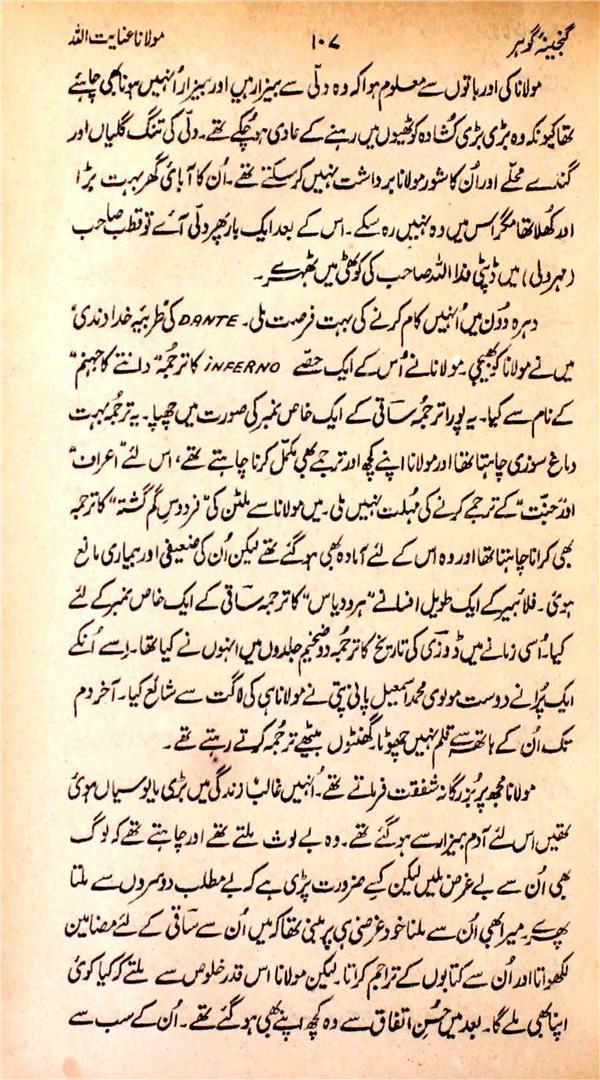 گنجینۂ گوہر ۱۰۷ مولانا عنایت اللہ
مولانا کی اور باتوں سے معلوم ہوا کہ وہ دلّی سے بیزار ہیں اور بیزار اُنہیں ہونا بھی چاہئے
تھا کیونکہ وہ بڑی بڑی کشادہ کوٹھیوں میں رہنے کے عادی ہو چکے تھے۔ دلّی کی تنگ گلیاں اور
گندے محلّے اور اُن کا شور مولانا برداشت نہیں کر سکتے تھے۔ اُن کا آبائی گھر بہت بڑا
اور کھلا تھا مگر اس میں وہ نہیں رہ سکے۔ اس کے بعد ایک بار پھر دلّی آئے تو قطب صاحب
(مہرولی) میں ڈپٹی فدا اللہ صاحب کی کوٹھی میں ٹھہرے۔
دہرہ دُون میں اُنہیں کام کرنے کی بہت فرصت ملی۔ DANTE کی "طربیہ خداوندی"
میں نے مولانا کو بھیجی۔ مولانا نے اُس کے ایک حصّے INFERNO کا ترجمہ "دانتے کا جہنم"
کے نام سے کیا۔ یہ پورا ترجمہ ساقی کے ایک خاص نمبر کی صورت میں چھپا۔ یہ ترجمہ بہت
دماغ سوزی چاہتا تھا اور مولانا اپنے کچھ اور ترجمے بھی مکمل کرنا چاہتے تھے، اس لئے "اعراف"
اور "جنّت" کے ترجمے کرنے کی مہلت نہیں ملی۔ میں مولانا سے ملٹن کی "فردوسِ گم گشتہ" کا ترجمہ
بھی کرانا چاہتا تھا اور وہ اس کے لئے آمادہ بھی ہو گئے تھے لیکن اُن کی ضعیفی اور بیماری مانع
ہوئی۔ فلابیر کے ایک طویل افسانے "ہرودیاس" کا ترجمہ ساقی کے ایک خاص نمبر کے لئے
کیا۔ اُسی زمانے میں ڈوزی کی تاریخ کا ترجمہ دو ضخیم جلدوں میں انہوں نے کیا تھا۔ اِسے اُنکے
ایک پُرانے دوست مولوی محمد اسمعیل پانی پتی نے مولانا ہی کی لاگت سے شائع کیا۔ آخر دم
تک اُن کے ہاتھ سے قلم نہیں چھوٹا۔ گھنٹوں بیٹھے ترجمہ کرتے رہتے تھے۔
مولانا مجھ پر بزرگانہ شفقت فرماتے تھے۔ اُنہیں غالباً زندگی میں بڑی مایوسیاں ہوئی
تھیں اس لئے آدم بیزار سے ہو گئے تھے۔ وہ بے لوث ملتے تھے اور چاہتے تھے کہ لوگ
بھی اُن سے بے غرض ملیں لیکن کسے ضرورت پڑی ہے کہ بے مطلب دوسروں سے ملتا
پھرے۔ میرا بھی اُن سے ملنا خود غرضی ہی پر مبنی تھا کہ میں اُن سے ساقی کے لئے مضامین
لکھواتا اور اُن سے کتابوں کے تراجم کراتا۔ لیکن مولانا اس قدر خلوص سے ملتے کہ کیا کوئی
اپنا بھی ملے گا۔ بعد میں حُسنِ اتفاق سے وہ کچھ اپنے بھی ہو گئے تھے۔ اُن کے سب سے